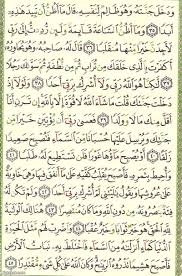 وَدَخَلَ جَنَّتَهُۥ وَهُوَ ظَالِمٌ لِّنَفْسِهِۦ قَالَ مَآ أَظُنُّ أَن تَبِيدَ هَٰذِهِۦٓ
أَبَدًا ٣٥ وَمَآ أَظُنُّ ٱلسَّاعَةَ قَآئِمَةً وَلَئِن رُّدِدتُّ إِلَىٰ رَبِّى
لَأَجِدَنَّ خَيْرًا مِّنْهَا مُنقَلَبًا ٣٦ قَالَ لَهُۥ صَاحِبُهُۥ وَهُوَ يُحَاوِرُهُۥٓ
أَكَفَرْتَ بِٱلَّذِى خَلَقَكَ مِن تُرَابٍ ثُمَّ مِن نُّطْفَةٍ ثُمَّ سَوَّىٰكَ رَجُلًا
٣٧ لَّٰكِنَّا۠ هُوَ ٱللَّهُ رَبِّى وَلَآ أُشْرِكُ بِرَبِّىٓ أَحَدًا ٣٨ وَلَوْلَآ إِذْ
دَخَلْتَ جَنَّتَكَ قُلْتَ مَا شَآءَ ٱللَّهُ لَا قُوَّةَ إِلَّا بِٱللَّهِ إِن تَرَنِ أَنَا۠
أَقَلَّ مِنكَ مَالًا وَوَلَدًا ٣٩ فَعَسَىٰ رَبِّىٓ أَن يُؤْتِيَنِ خَيْرًا مِّن
جَنَّتِكَ وَيُرْسِلَ عَلَيْهَا حُسْبَانًا مِّنَ ٱلسَّمَآءِ فَتُصْبِحَ صَعِيدًا
زَلَقًا ٤٠ أَوْ يُصْبِحَ مَآؤُهَا غَوْرًا فَلَن تَسْتَطِيعَ لَهُۥ طَلَبًا
٤١ وَأُحِيطَ بِثَمَرِهِۦ فَأَصْبَحَ يُقَلِّبُ كَفَّيْهِ عَلَىٰ مَآ أَنفَقَ فِيهَا وَهِىَ خَاوِيَةٌ
عَلَىٰ عُرُوشِهَا وَيَقُولُ يَٰلَيْتَنِى لَمْ أُشْرِكْ بِرَبِّىٓ أَحَدًا ٤٢ وَلَمْ تَكُن لَّهُۥ
فِئَةٌ يَنصُرُونَهُۥ مِن دُونِ ٱللَّهِ وَمَا كَانَ مُنتَصِرًا ٤٣ هُنَالِكَ ٱلْوَلَٰيَةُ
لِلَّهِ ٱلْحَقِّ هُوَ خَيْرٌ ثَوَابًا وَخَيْرٌ عُقْبًا ٤٤ وَٱضْرِبْ لَهُم مَّثَلَ ٱلْحَيَوٰةِ
ٱلدُّنْيَا كَمَآءٍ أَنزَلْنَٰهُ مِنَ ٱلسَّمَآءِ فَٱخْتَلَطَ بِهِۦ نَبَاتُ ٱلْأَرْضِ
فَأَصْبَحَ هَشِيمًا تَذْرُوهُ ٱلرِّيَٰحُ وَكَانَ ٱللَّهُ عَلَىٰ كُلِّ شَىْءٍ مُّقْتَدِرًا ٤٥